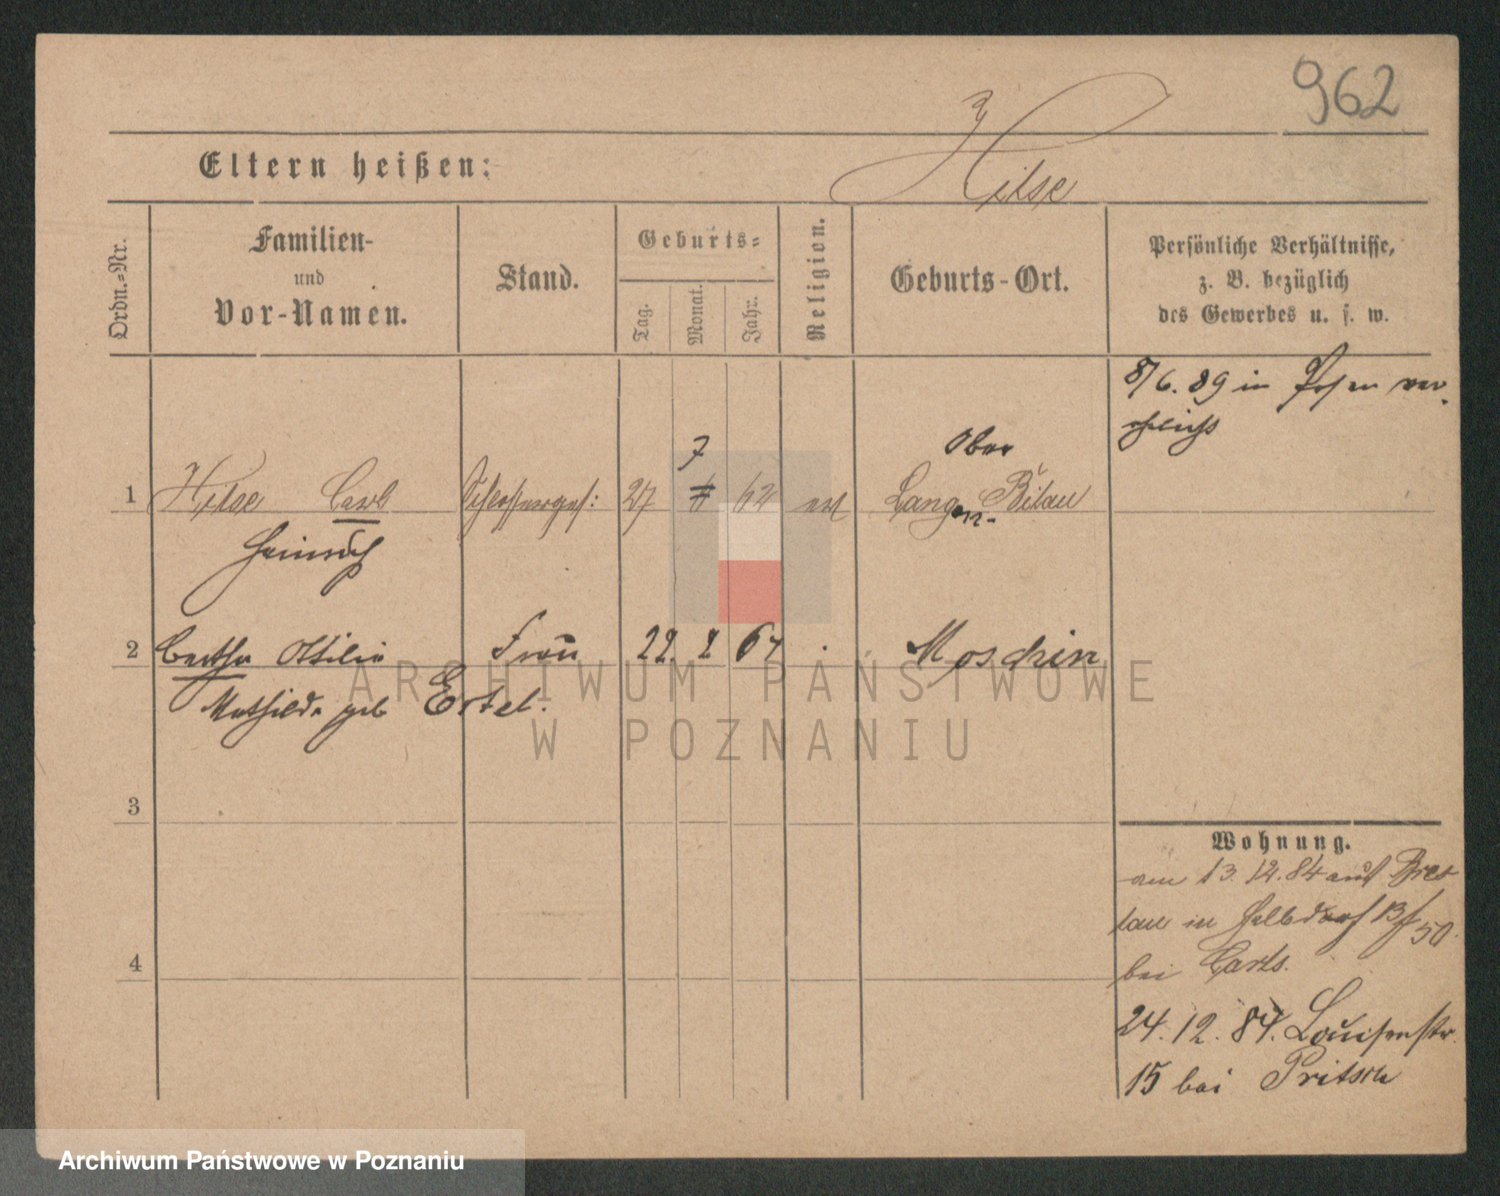 962
Eltern heißen:
Hilse
Ordn.-Nr.
Familien-
und
Vor-Namen.
Stand.
Geburts-
Tag.
Monat.
Jahr.
Religion.
Geburts-Ort.
Persönliche Verhältnisse,
z. B. bezüglich
des Gewerbes u. s. w.
8/6. 89 in Posen ver-
ehelicht
1 Hilse Carl Schlosserges: 27 7 62 ev Ober Langen-Bilau
Heinrich
2 Bertha Ottilie Frau 22 2 67 Moschin
Mathilde geb Ertel.
3
4
Wohnung.
am 13.12.84 aus Bres
lau in Halbdorf 50.
bei
24.12.84. Louisenstr.
15 bei Pritsch
ARCHIWUM PAŃSTWOWE
W POZNANIU
Archiwum Państwowe w Poznaniu